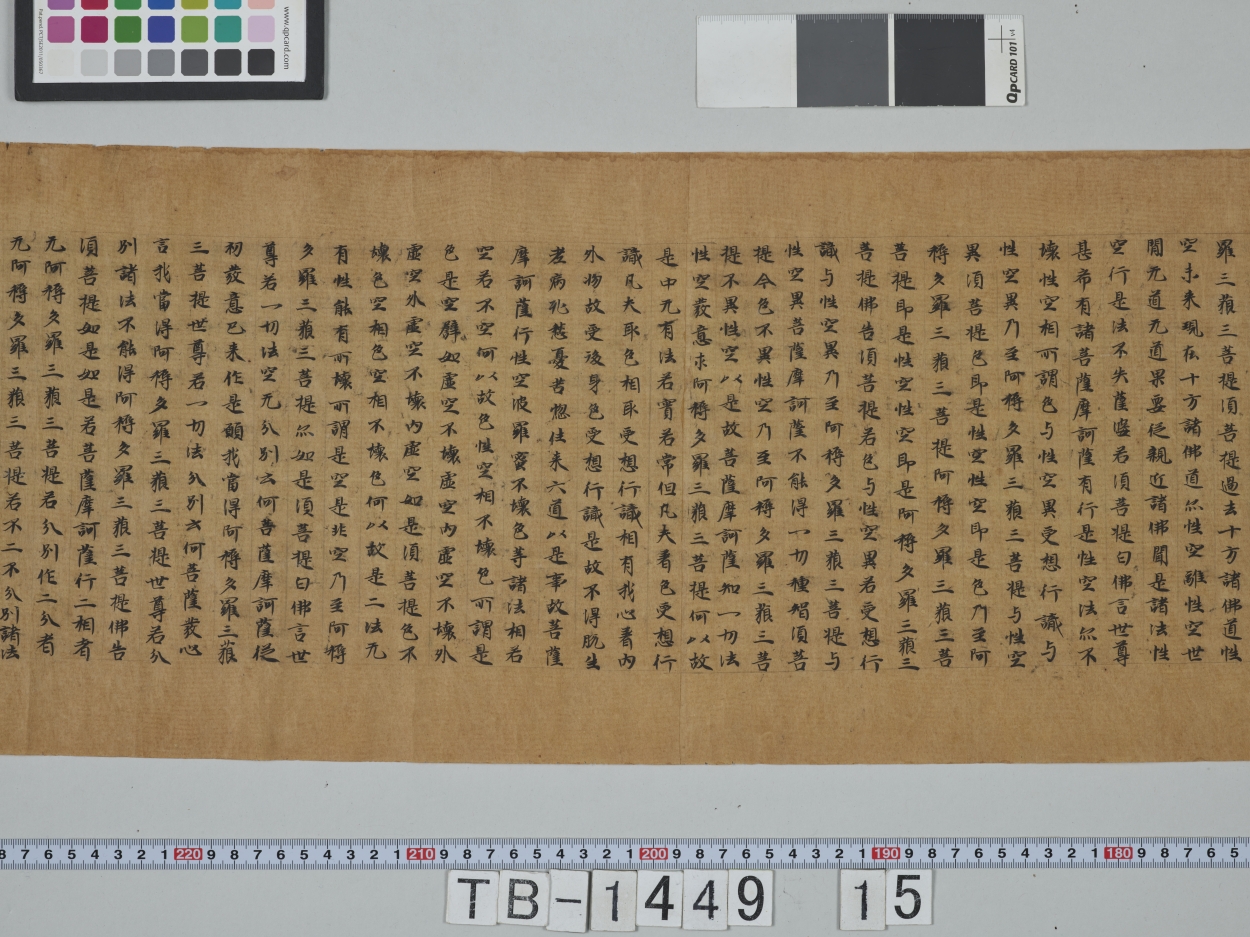 羅三藐三菩提須菩提過去十方諸佛道性
空未来現在十方諸佛道亦性空離性空世
間无道无道果要從親近諸佛聞是諸法性
空行是法不失薩婆若須菩提白佛言世尊
甚希有諸菩薩摩訶薩有行是性空法亦不
壞性空相所謂色与性空異受想行識与
性空異乃至阿耨多羅三藐三菩提与性空
異須菩提色即是性空性空即是色乃至阿
耨多羅三藐三菩提阿耨多羅三藐三菩
菩提即是性空性空即是阿耨多羅三藐三
菩提佛告須菩提若色与性空異若受想行
識与性空異乃至阿耨多羅三藐三菩提与
性空異菩薩摩訶薩不能得一切種智須菩
提今色不異性空乃至阿耨多羅三藐三菩
提不異性空以是故菩薩摩訶薩知一切法
性空發意求阿耨多羅三藐三菩提何以故
是中无有法若實若常但凡夫著色受想行
識凡夫取色相取受想行識相有我心著內
外物故受後身色受想行識是故不得脫生
老病死愁憂苦惱往来六道以是事故菩薩
摩訶薩行性空波羅蜜不壞色等諸法相若
空若不空何以故色性空相不壞色所謂是
色是空譬如虛空不壞虛空內虛空不壞外
虛空外虛空不壞內虛空如是須菩提色不
壞色空相色空相不壞色何以故是二法无
有性能有所壞所謂是空是非空乃至阿耨
多羅三藐三菩提亦如是須菩提白佛言世
尊若一切法空无分別云何菩薩摩訶薩從
初發意已来作是願我當得阿耨多羅三藐
三菩提世尊若一切法分別云何菩薩發心
言我當得阿耨多羅三藐三菩提世尊若分
別諸法不能得阿耨多羅三藐三菩提佛告
須菩提如是如是若菩薩摩訶薩行二相者
无阿耨多羅三藐三菩提若分別作二分者
无阿耨多羅三藐三菩提若不二不分別諸法
www.qpcard.com
QpCARD 101 v4
8 7 6 5 4 3 2 1 220 9 8 7 6 5 4 3 2 1 210 9 8 7 6 5 4 3 2 1 200 9 8 7 6 5 4 3 2 1 190 9 8 7 6 5 4 3 2 1 180 9 8 7 6 5
TB-1449 15